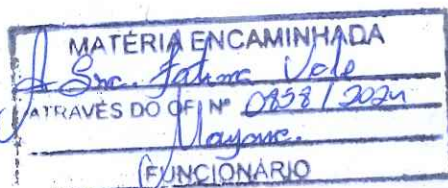 MATÉRIA ENCAMINHADA
A Sra. Fatima Vale
ATRAVÉS DO OF. Nº 0858/2024
Mayane.
FUNCIONÁRIO